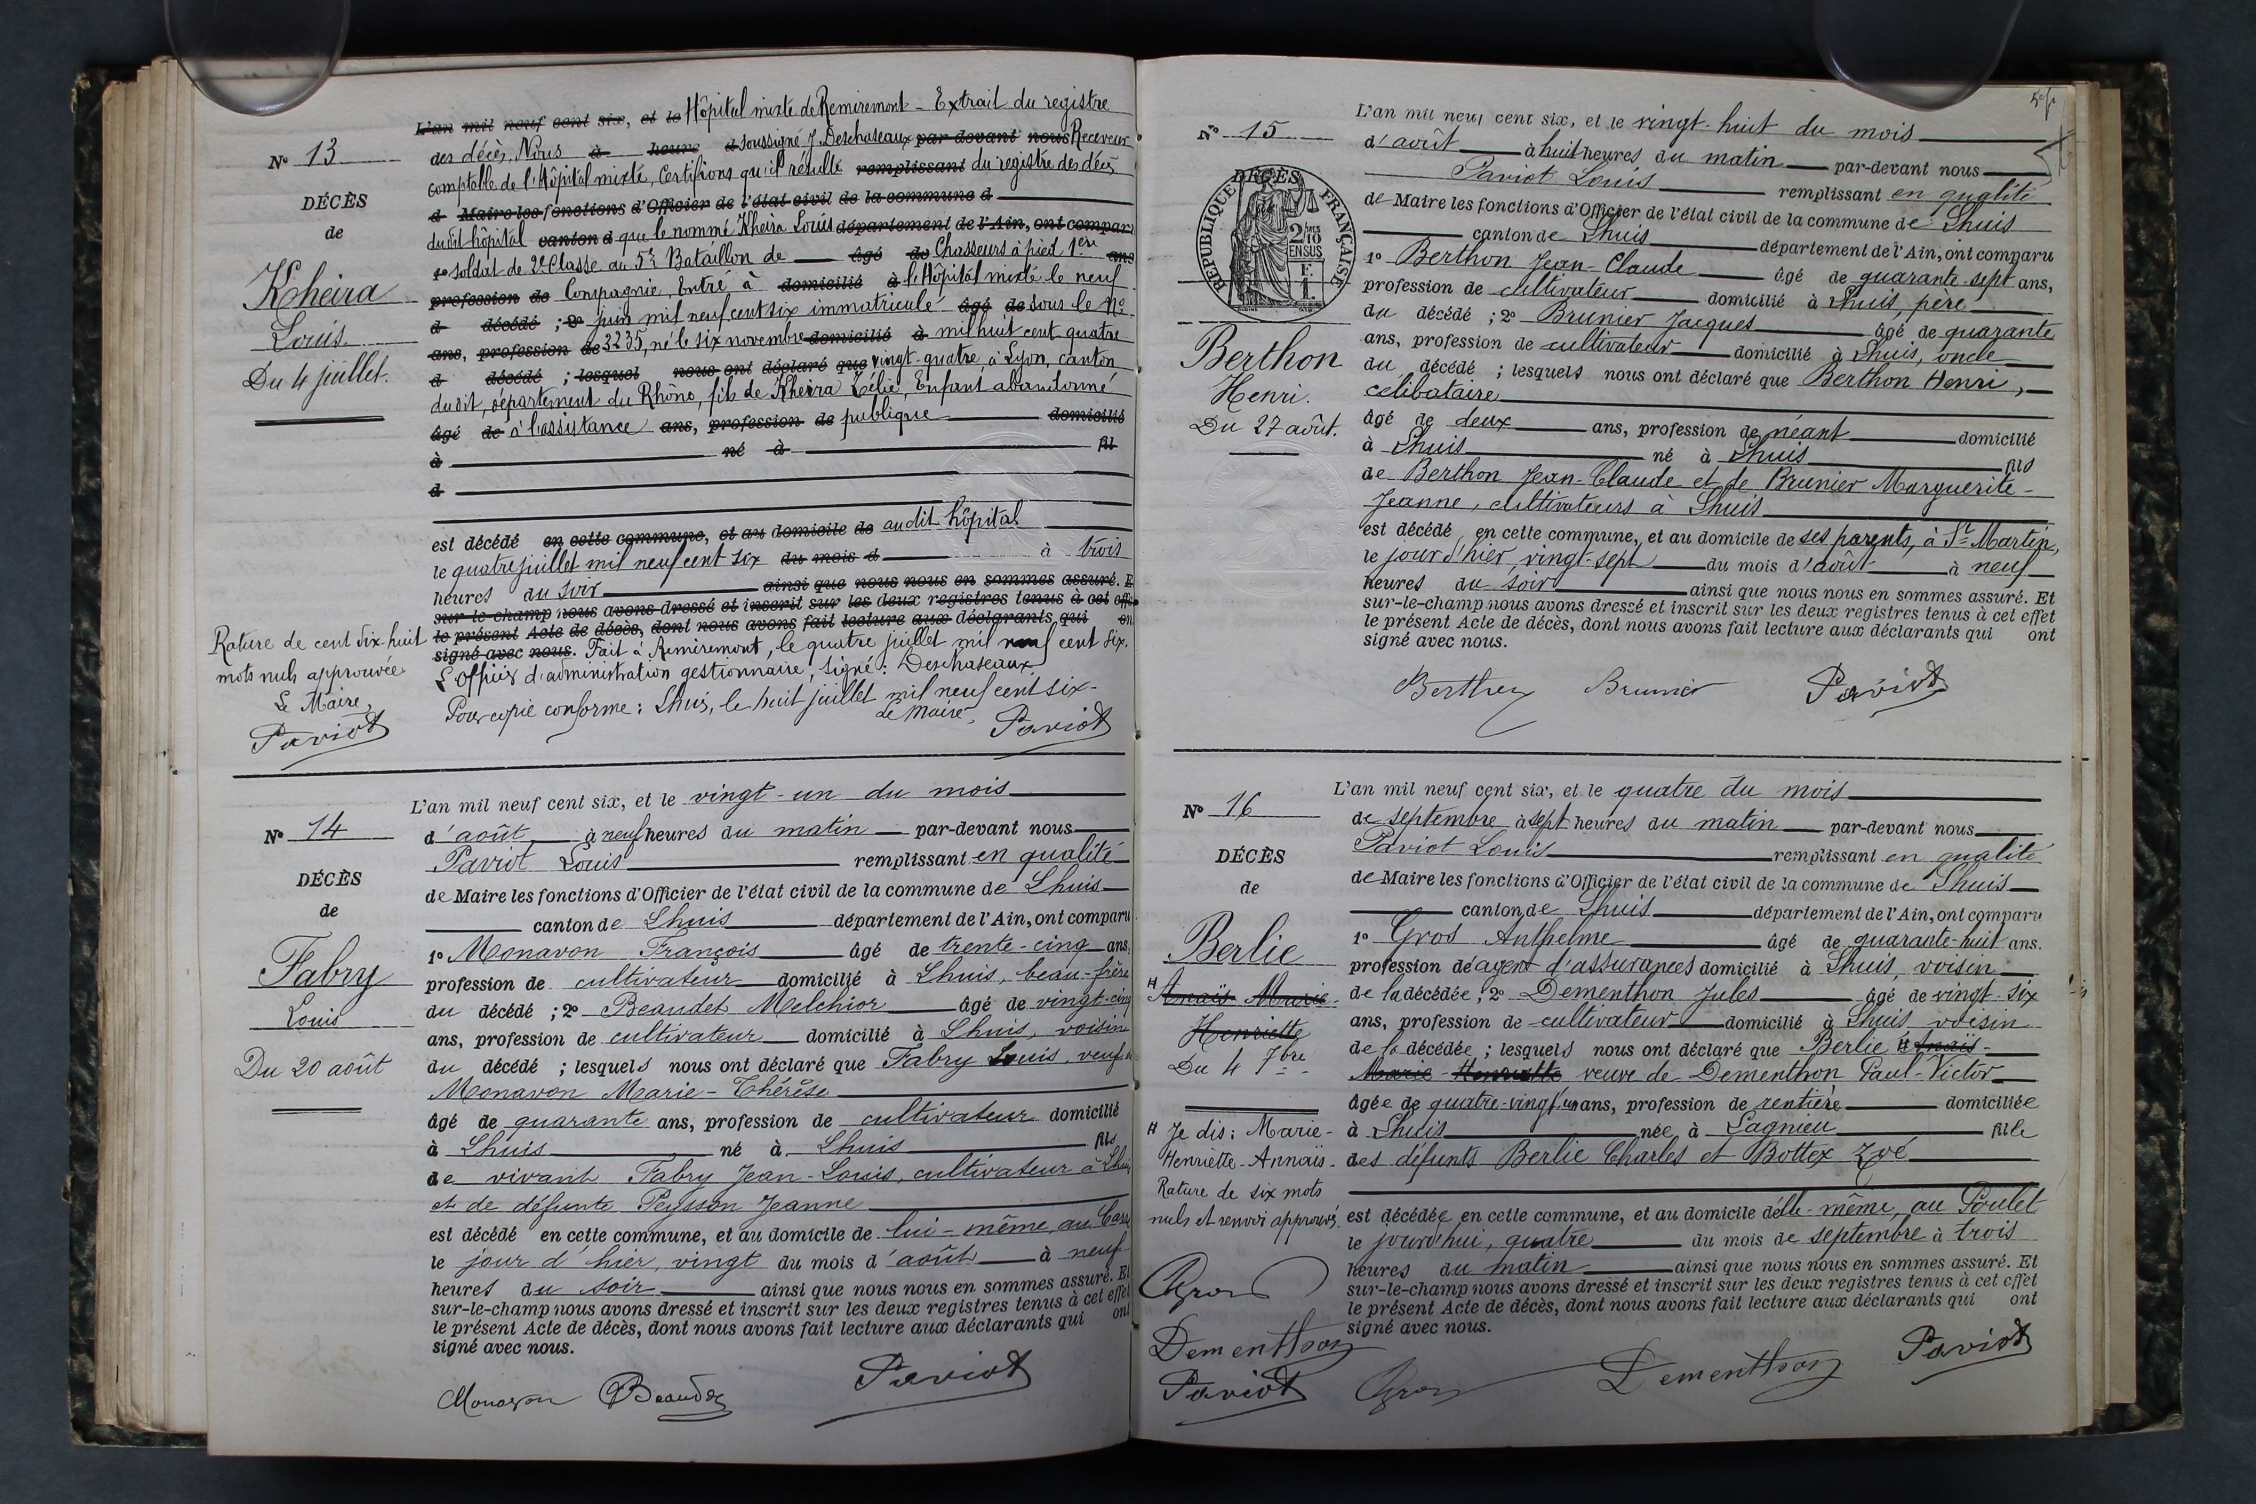 Nº 13
DÉCÈS
de
Kheira
Louis
Du 4 juillet.
L'an mil neuf cent six, et le Hôpital mixte de Remiremont - Extrait du registre
des décès. Nous à heure d soussigné J. Deschaseaux par devant nous Receveur
comptable de l'Hôpital mixte, Certifions qu'il résulte remplissant du registre des décès
d Maire les fonctions d'Officier de l'état civil de la commune d
dudit hôpital canton d que le nommé Kheira Louis département de l'Ain, ont comparu
1º soldat de 2e Classe au 5e Bataillon de âgé de Chasseurs à pied 1ère ans
profession de Compagnie, Entré à domicilié à l'Hôpital mixte le neuf
d décédé ; 2º juin mil neuf cent six immatriculé âgé de sous le Nº
ans, profession de 3235, né le six novembre domicilié à mil huit cent quatre
d décédé ; lesquel nous ont déclaré que vingt-quatre, à Lyon, canton
dudit, département du Rhône, fils de Kheira Zélie, Enfant abandonné
âgé de à l'assistance ans, profession de publique domicilié
à né à fil
d
est décédé en cette commune, et au domicile de audit hôpital
le quatre juillet mil neuf cent six du mois d à trois
heures du soir ainsi que nous nous en sommes assuré. Et
sur-le-champ nous avons dressé et inscrit sur les deux registres tenus à cet effet
le présent Acte de décès, dont nous avons fait lecture aux déclarants, qui ont
signé avec nous. Fait à Remiremont, le quatre juillet mil neuf cent six.
L'officier d'administration gestionnaire, signé : Deschaseaux
Pour copie conforme : Lhuis, le huit juillet mil neuf cent six.
Le Maire,
Paviot
Rature de cent dix-huit
mots nuls approuvée
Le Maire,
Paviot
Nº 14
DÉCÈS
de
Fabry
Louis
Du 20 août
L'an mil neuf cent six, et le vingt-un du mois
d'août à neuf heures du matin par-devant nous
Paviot Louis remplissant en qualité
de Maire les fonctions d'Officier de l'état civil de la commune de Lhuis
canton de Lhuis département de l'Ain, ont comparu
1º Monavon François âgé de trente-cinq ans,
profession de cultivateur domicilié à Lhuis, beau-frère
du décédé ; 2º Beaudet Melchior âgé de vingt-cinq
ans, profession de cultivateur domicilié à Lhuis, voisin
du décédé ; lesquels nous ont déclaré que Fabry Louis, veuf de
Monavon Marie-Thérèse
âgé de quarante ans, profession de cultivateur domicilié
à Lhuis né à Lhuis fils
de vivant Fabry Jean-Louis, cultivateur à Lhuis
et de défunte Peysson Jeanne
est décédé en cette commune, et au domicile de lui-même, au
le jour d'hier, vingt du mois d'août à neuf
heures du soir ainsi que nous nous en sommes assuré. Et
sur-le-champ nous avons dressé et inscrit sur les deux registres tenus à cet effet
le présent Acte de décès, dont nous avons fait lecture aux déclarants qui ont
signé avec nous.
Monavon Beaudet Paviot
Nº 15
RÉPUBLIQUE FRANÇAISE
DÉCÈS
2/10
EN SUS
Berthon
Henri.
Du 27 août.
L'an mil neuf cent six, et le vingt-huit du mois
d'août à huit heures du matin par-devant nous
Paviot Louis remplissant en qualité
de Maire les fonctions d'Officier de l'état civil de la commune de Lhuis
canton de Lhuis département de l'Ain, ont comparu
1º Berthon Jean-Claude âgé de quarante-sept ans,
profession de cultivateur domicilié à Lhuis, père
du décédé ; 2º Brunier Jacques âgé de quarante
ans, profession de cultivateur domicilié à Lhuis, oncle
du décédé ; lesquels nous ont déclaré que Berthon Henri,
célibataire
âgé de deux ans, profession de néant domicilié
à Lhuis né à Lhuis fils
de Berthon Jean-Claude et de Brunier Marguerite-
Jeanne, cultivateurs à Lhuis
est décédé en cette commune, et au domicile de ses parents, à St Martin,
le jour d'hier, vingt-sept du mois d'août à neuf
heures du soir ainsi que nous nous en sommes assuré. Et
sur-le-champ nous avons dressé et inscrit sur les deux registres tenus à cet effet
le présent Acte de décès, dont nous avons fait lecture aux déclarants qui ont
signé avec nous.
Berthon Brunier Paviot
Nº 16
DÉCÈS
de
Berlie
H Anaïs Marie-
Henriette
Du 4 7bre
L'an mil neuf cent six, et le quatre du mois
de septembre à sept heures du matin par-devant nous
Paviot Louis remplissant en qualité
de Maire les fonctions d'Officier de l'état civil de la commune de Lhuis
canton de Lhuis département de l'Ain, ont comparu
1º Gros Anthelme âgé de quarante-huit ans.
profession de agent d'assurances domicilié à Lhuis, voisin
de la décédée ; 2º Dementhon Jules âgé de vingt-six
ans, profession de cultivateur domicilié à Lhuis, voisin
de la décédée ; lesquels nous ont déclaré que Berlie H Anaïs-
Marie-Henriette veuve de Dementhon Paul-Victor
âgée de quatre-vingt-un ans, profession de rentière domiciliée
à Lhuis née à Lagnieu fille
des défunts Berlie Charles et Bottex Zoé
est décédée en cette commune, et au domicile d'elle-même, au Poulet
le jourd'hui, quatre du mois de septembre à trois
heures du matin ainsi que nous nous en sommes assuré. Et
sur-le-champ nous avons dressé et inscrit sur les deux registres tenus à cet effet
le présent Acte de décès, dont nous avons fait lecture aux déclarants qui ont
signé avec nous.
H Je dis : Marie-
Henriette-Annaïs-
Rature de six mots
nuls et renvoi approuvés.
Gros
Dementhon
Paviot
Gros Dementhon Paviot